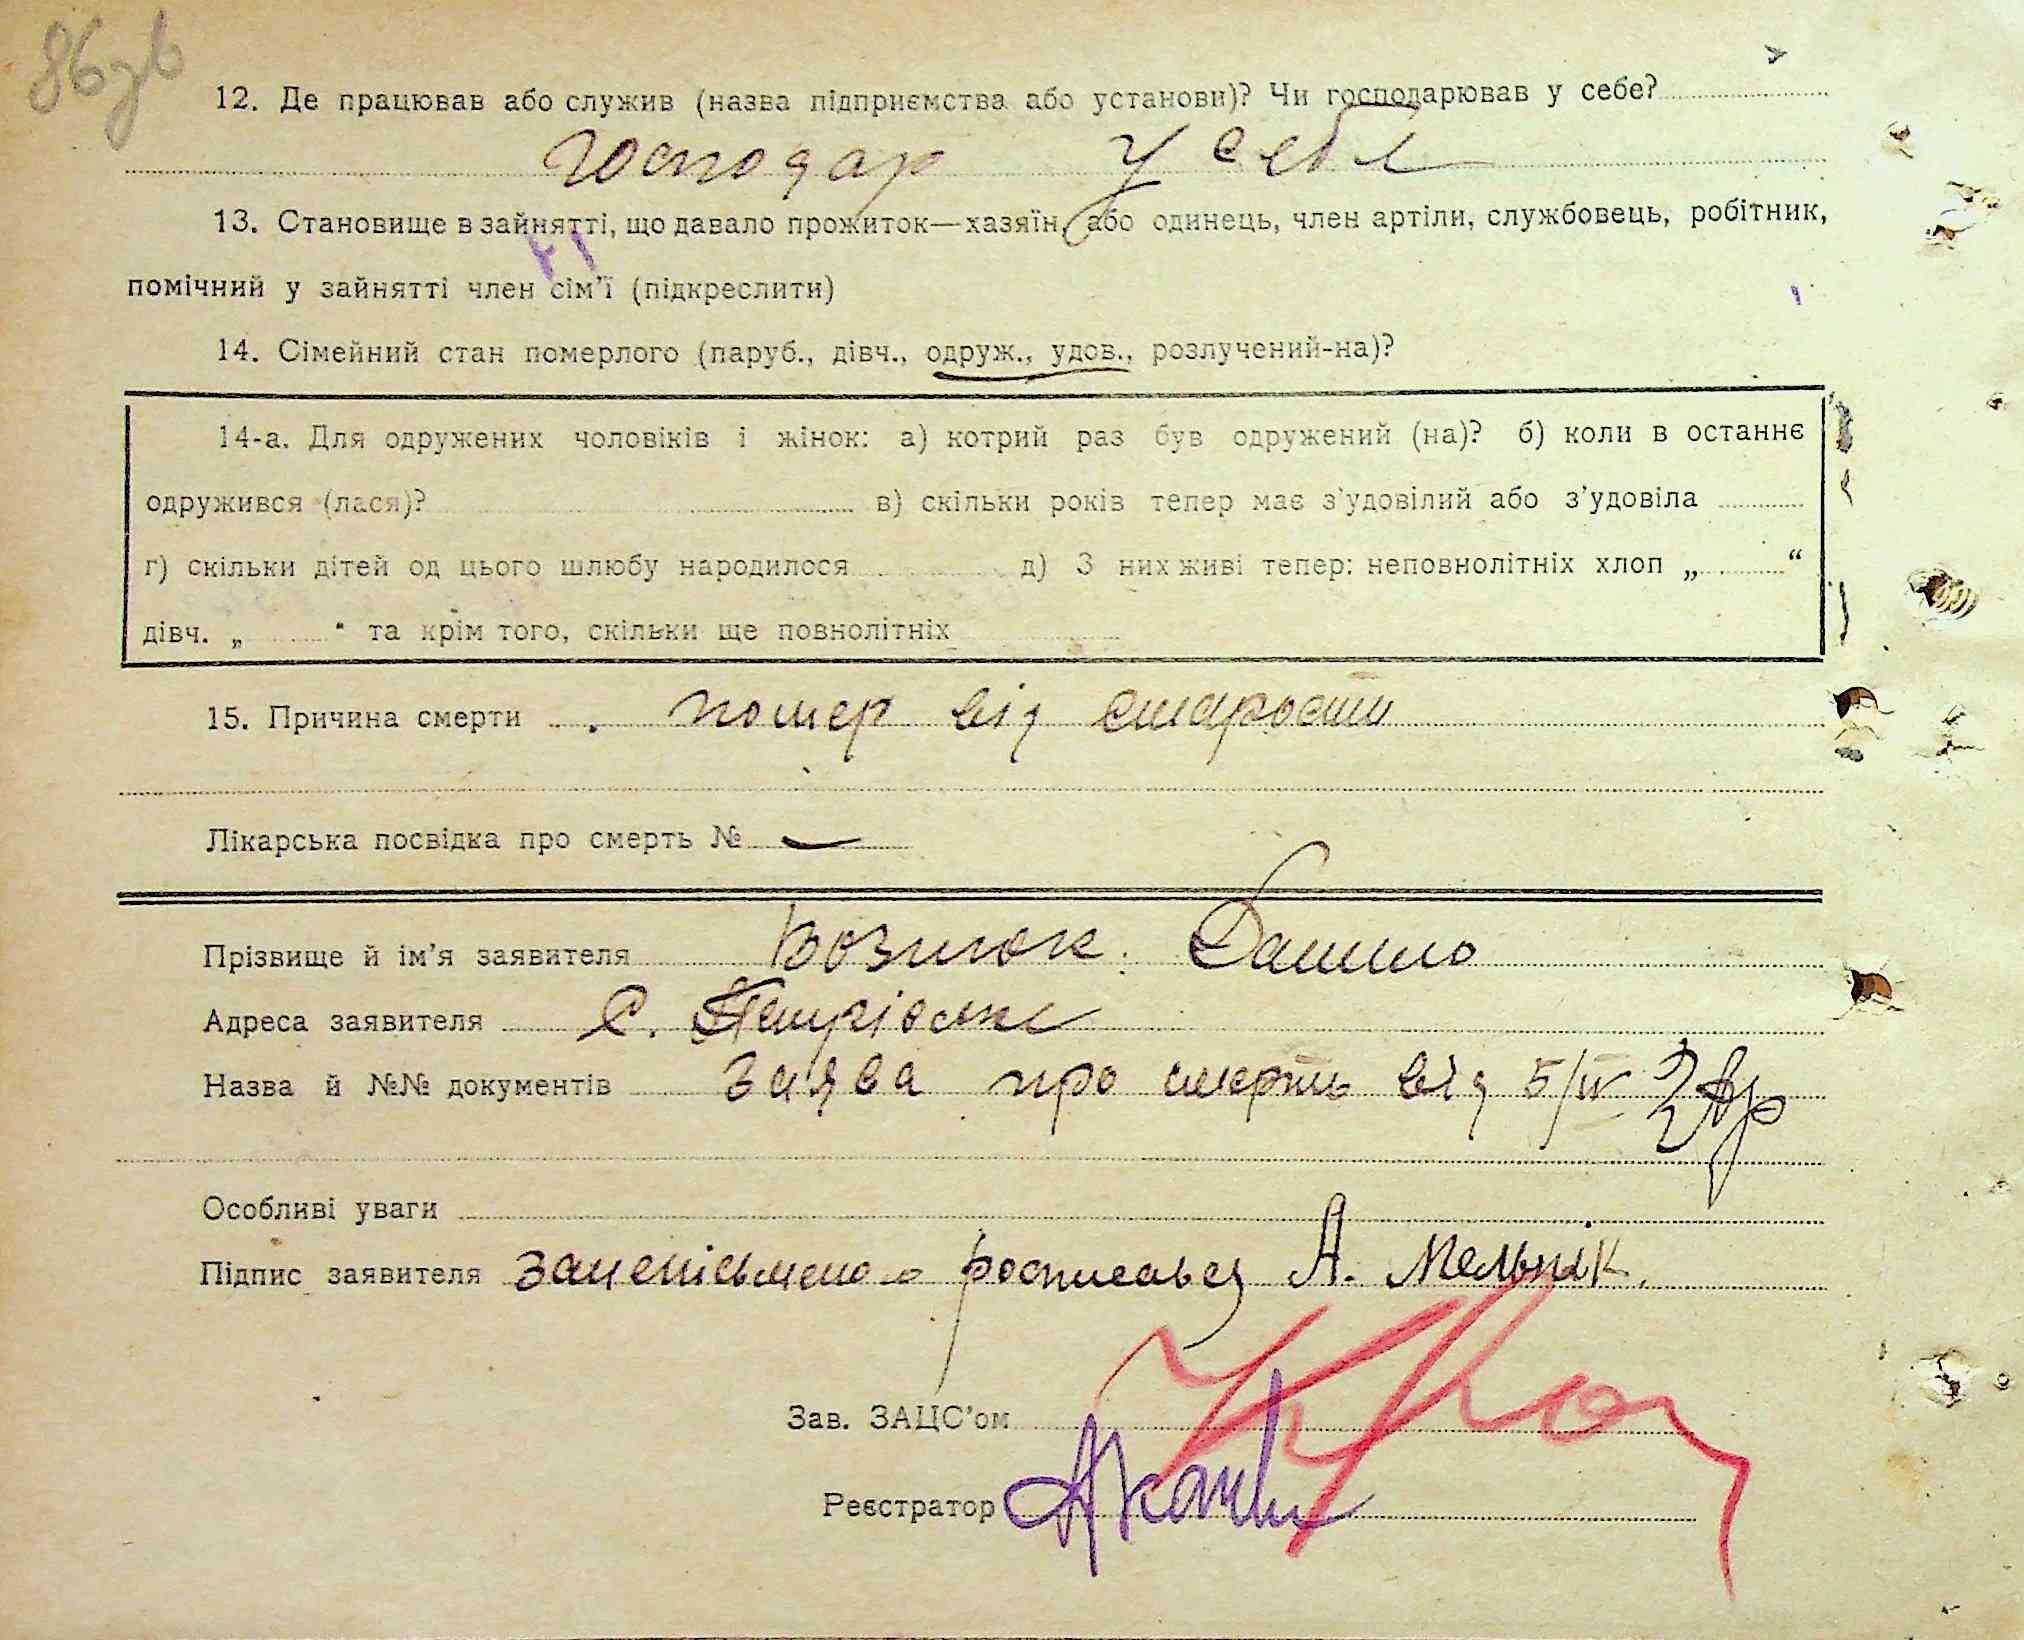 86зв
12. Де працював або служив (назва підприємства або установи)? Чи господарював у себе?
господар у себе
13. Становище в зайнятті, що давало прожиток—хазяїн, або одинець, член артіли, службовець, робітник,
помічний у зайнятті член сім'ї (підкреслити)
14. Сімейний стан померлого (паруб., дівч., одруж., удов., розлучений-на)?
14-а. Для одружених чоловіків і жінок: а) котрий раз був одружений (на)? б) коли в останнє
одружився (лася)? в) скільки років тепер має з'удовілий або з'удовіла
г) скільки дітей од цього шлюбу народилося д) З них живі тепер: неповнолітніх хлоп „ “
дівч. „ “ та крім того, скільки ще повнолітніх
15. Причина смерти помер від старости
Лікарська посвідка про смерть № —
Прізвище й ім'я заявителя Вознюк Данило
Адреса заявителя с.
Назва й №№ документів Заява про смерть від 5/IV
Особливі уваги
Підпис заявителя росписавсь А. Мельник.
Зав. ЗАЦС'ом
Реєстратор